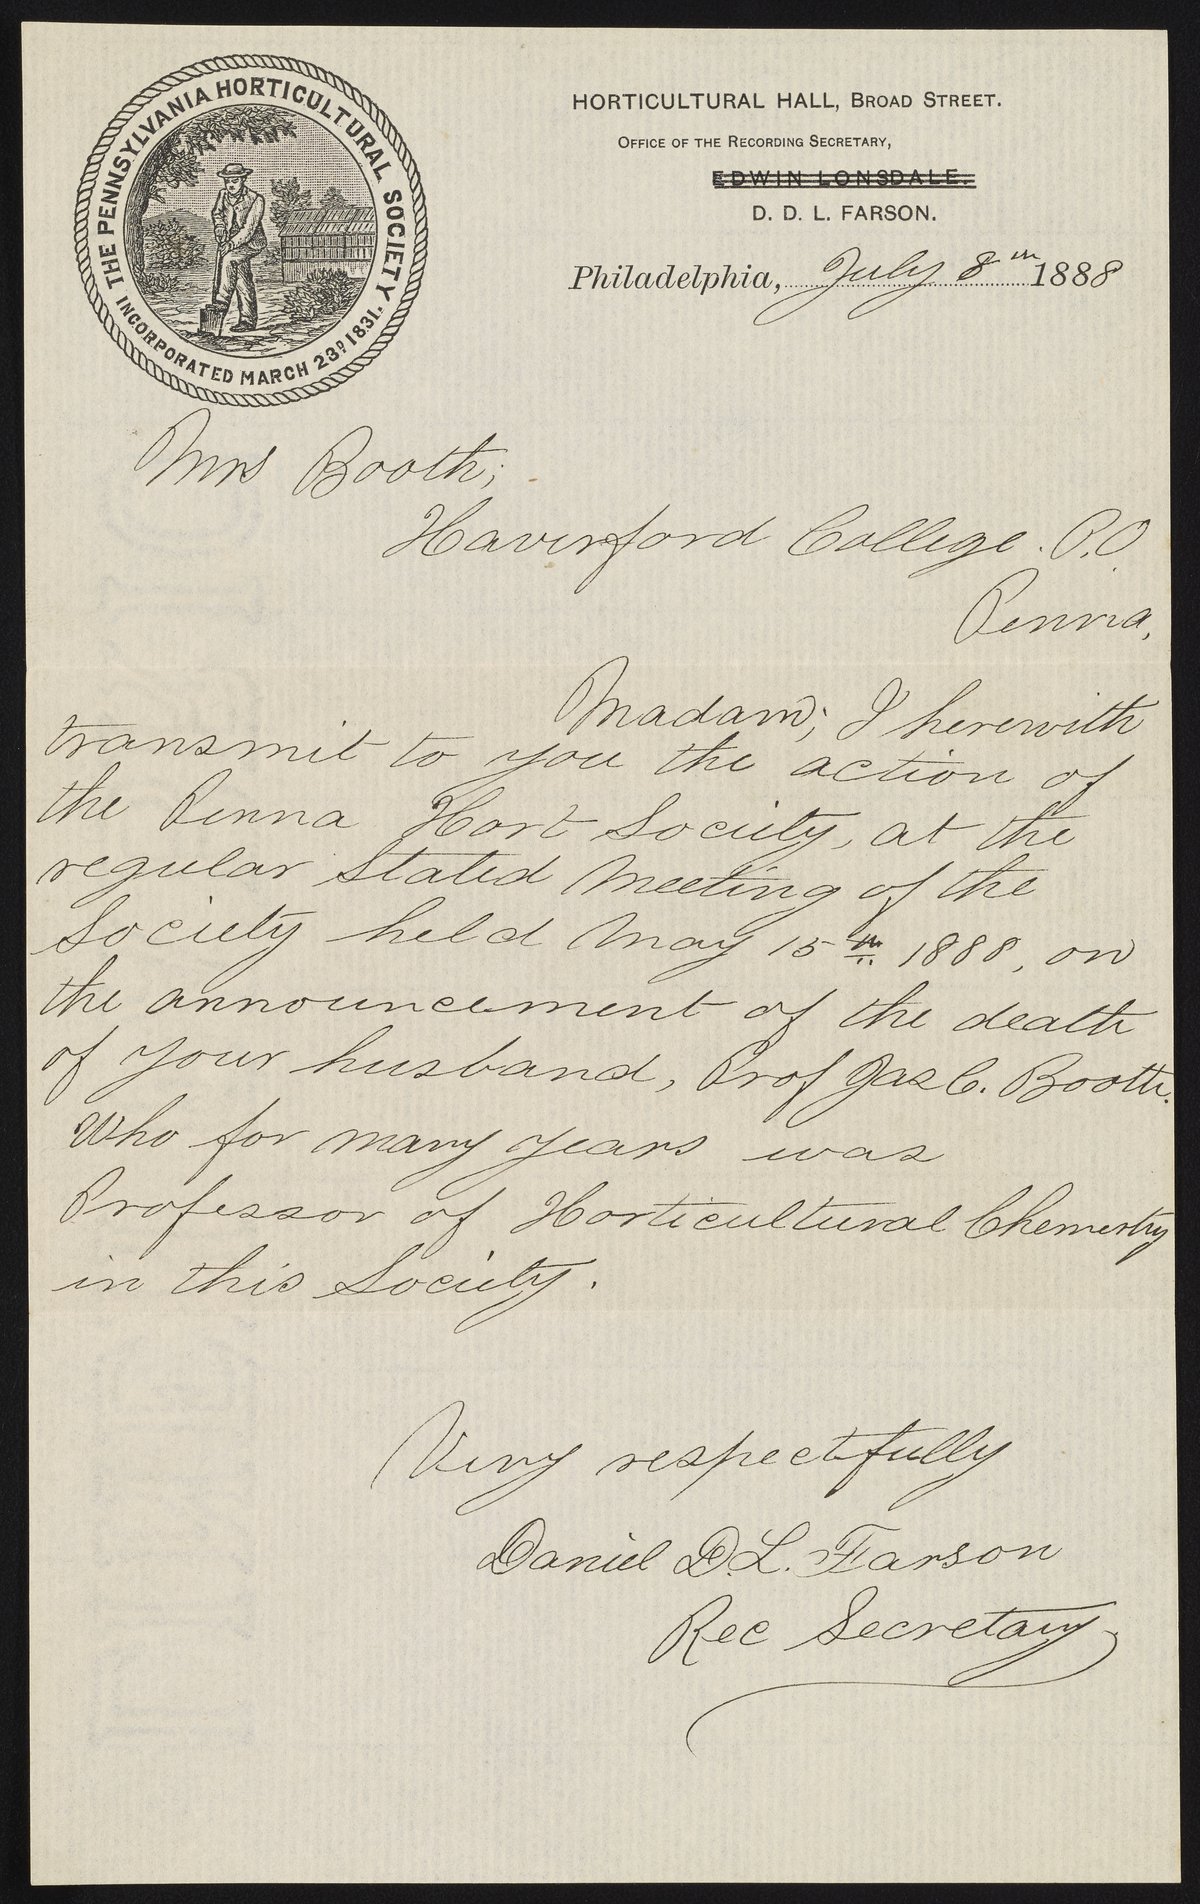 THE PENNSYLVANIA HORTICULTURAL SOCIETY
INCORPORATED MARCH 23D 1831.
HORTICULTURAL HALL, BROAD STREET.
OFFICE OF THE RECORDING SECRETARY,
EDWIN LONSDALE.
D. D. L. FARSON.
Philadelphia, July 8th 1888
Mrs Booth;
Haverford College. P.O
Penna,
Madam; I herewith
transmit to you the action of
the Penna Hort Society, at the
regular Stated Meeting of the
Society held May 15th 1888, on
the announcement of the death
of your husband, Prof Jas C. Booth.
Who for many years was
Professor of Horticultural Chemestry
in this Society.
Very respectfully
Daniel D. L. Farson
Rec Secretary